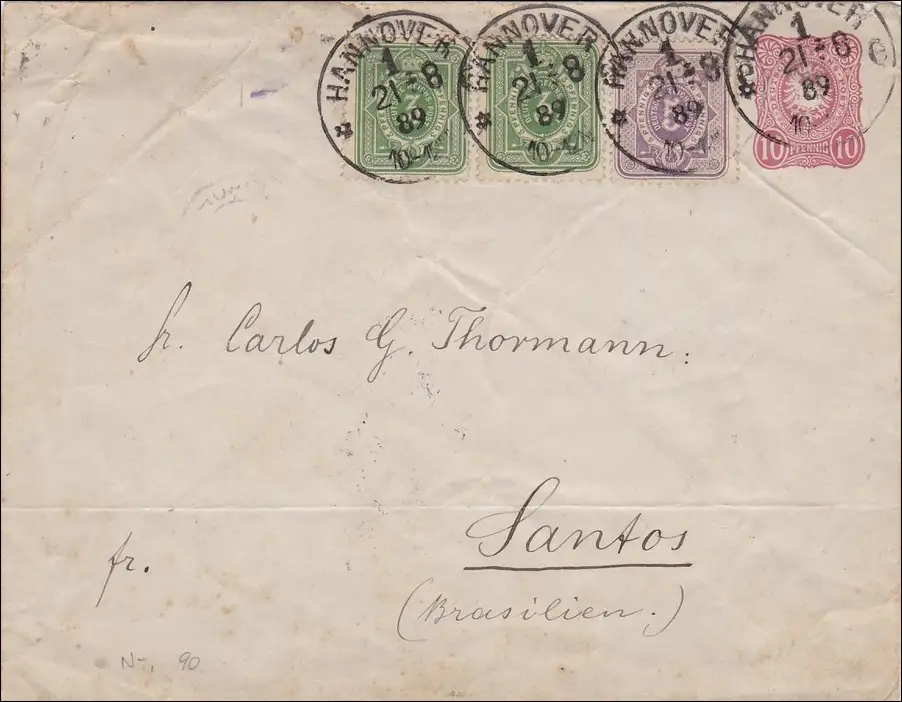 HANNOVER HANNOVER HANNOVER HANNOVER
1 1 1 1
21 8 21 8 21 8 21 8 e
89 89 89 89
10-1 10-1 10-1 10-
3 3 3 3 5
10 PFENNIG 10
Hr. Carlos G. Thormann.
Santos
fr.
(Brasilien.)
N-. 90